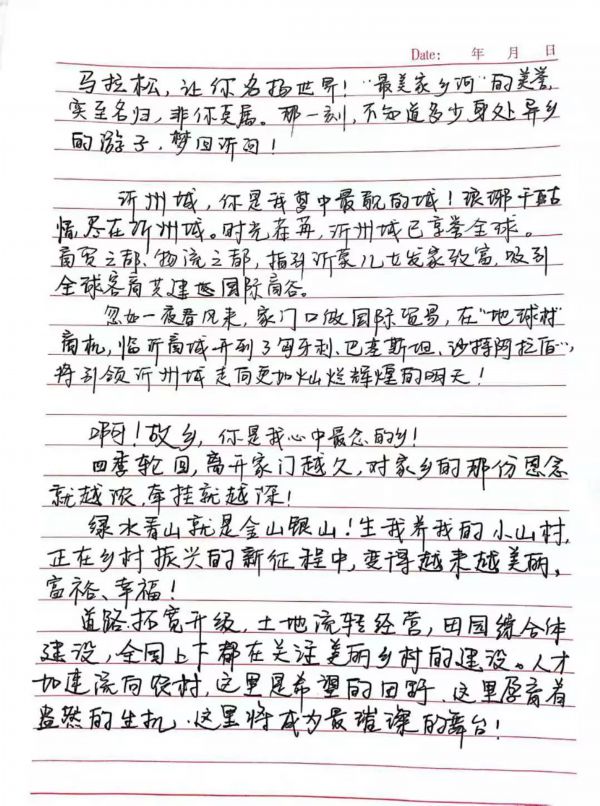 Date: 年 月 日
马拉松，让你名扬世界！"最美家乡河"的美誉，
实至名归，非你莫属。那一刻，不知道多少身处异乡
的游子，梦回沂河！
沂州城，你是我梦中最靓的城！琅琊千古
情尽在沂州城。时光荏苒，沂州城已享誉全球。
商贸之都、物流之都，指引沂蒙儿女发家致富，吸引
全球客商共建世国际商谷。
忽如一夜春风来，家门口做国际贸易，在"地球村"
商机，临沂商城开到了匈牙利、巴基斯坦、沙特阿拉伯…，
将引领沂州城走向更加灿烂辉煌的明天！
啊！故乡，你是我心中最念的乡！
四季轮回，离开家门越久，对家乡的那份思念
就越浓，牵挂就越深！
绿水青山就是金山银山！生我养我的小山村，
正在乡村振兴的新征程中，变得越来越美丽、
富裕、幸福！
道路拓宽升级，土地流转经营，田园综合体
建设，全国上下都在关注美丽乡村的建设。人才
加速流向农村，这里是希望的田野、这里孕育着
盎然的生机、这里将成为最璀璨的舞台！